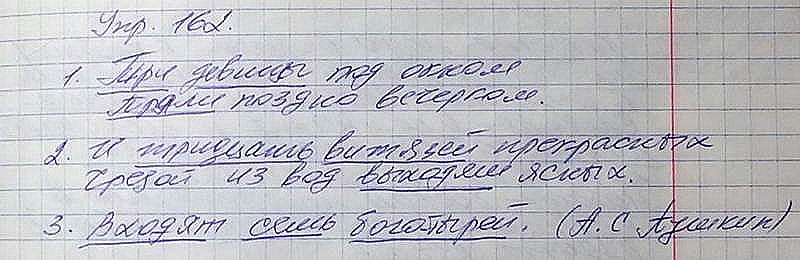 Упр. 162.
1. Три девицы под окном
Пряли поздно вечерком.
2. И тридцать витязей прекрасных
Чредой из вод выходят ясных.
3. Входят семь богатырей. (А. С. Пушкин)